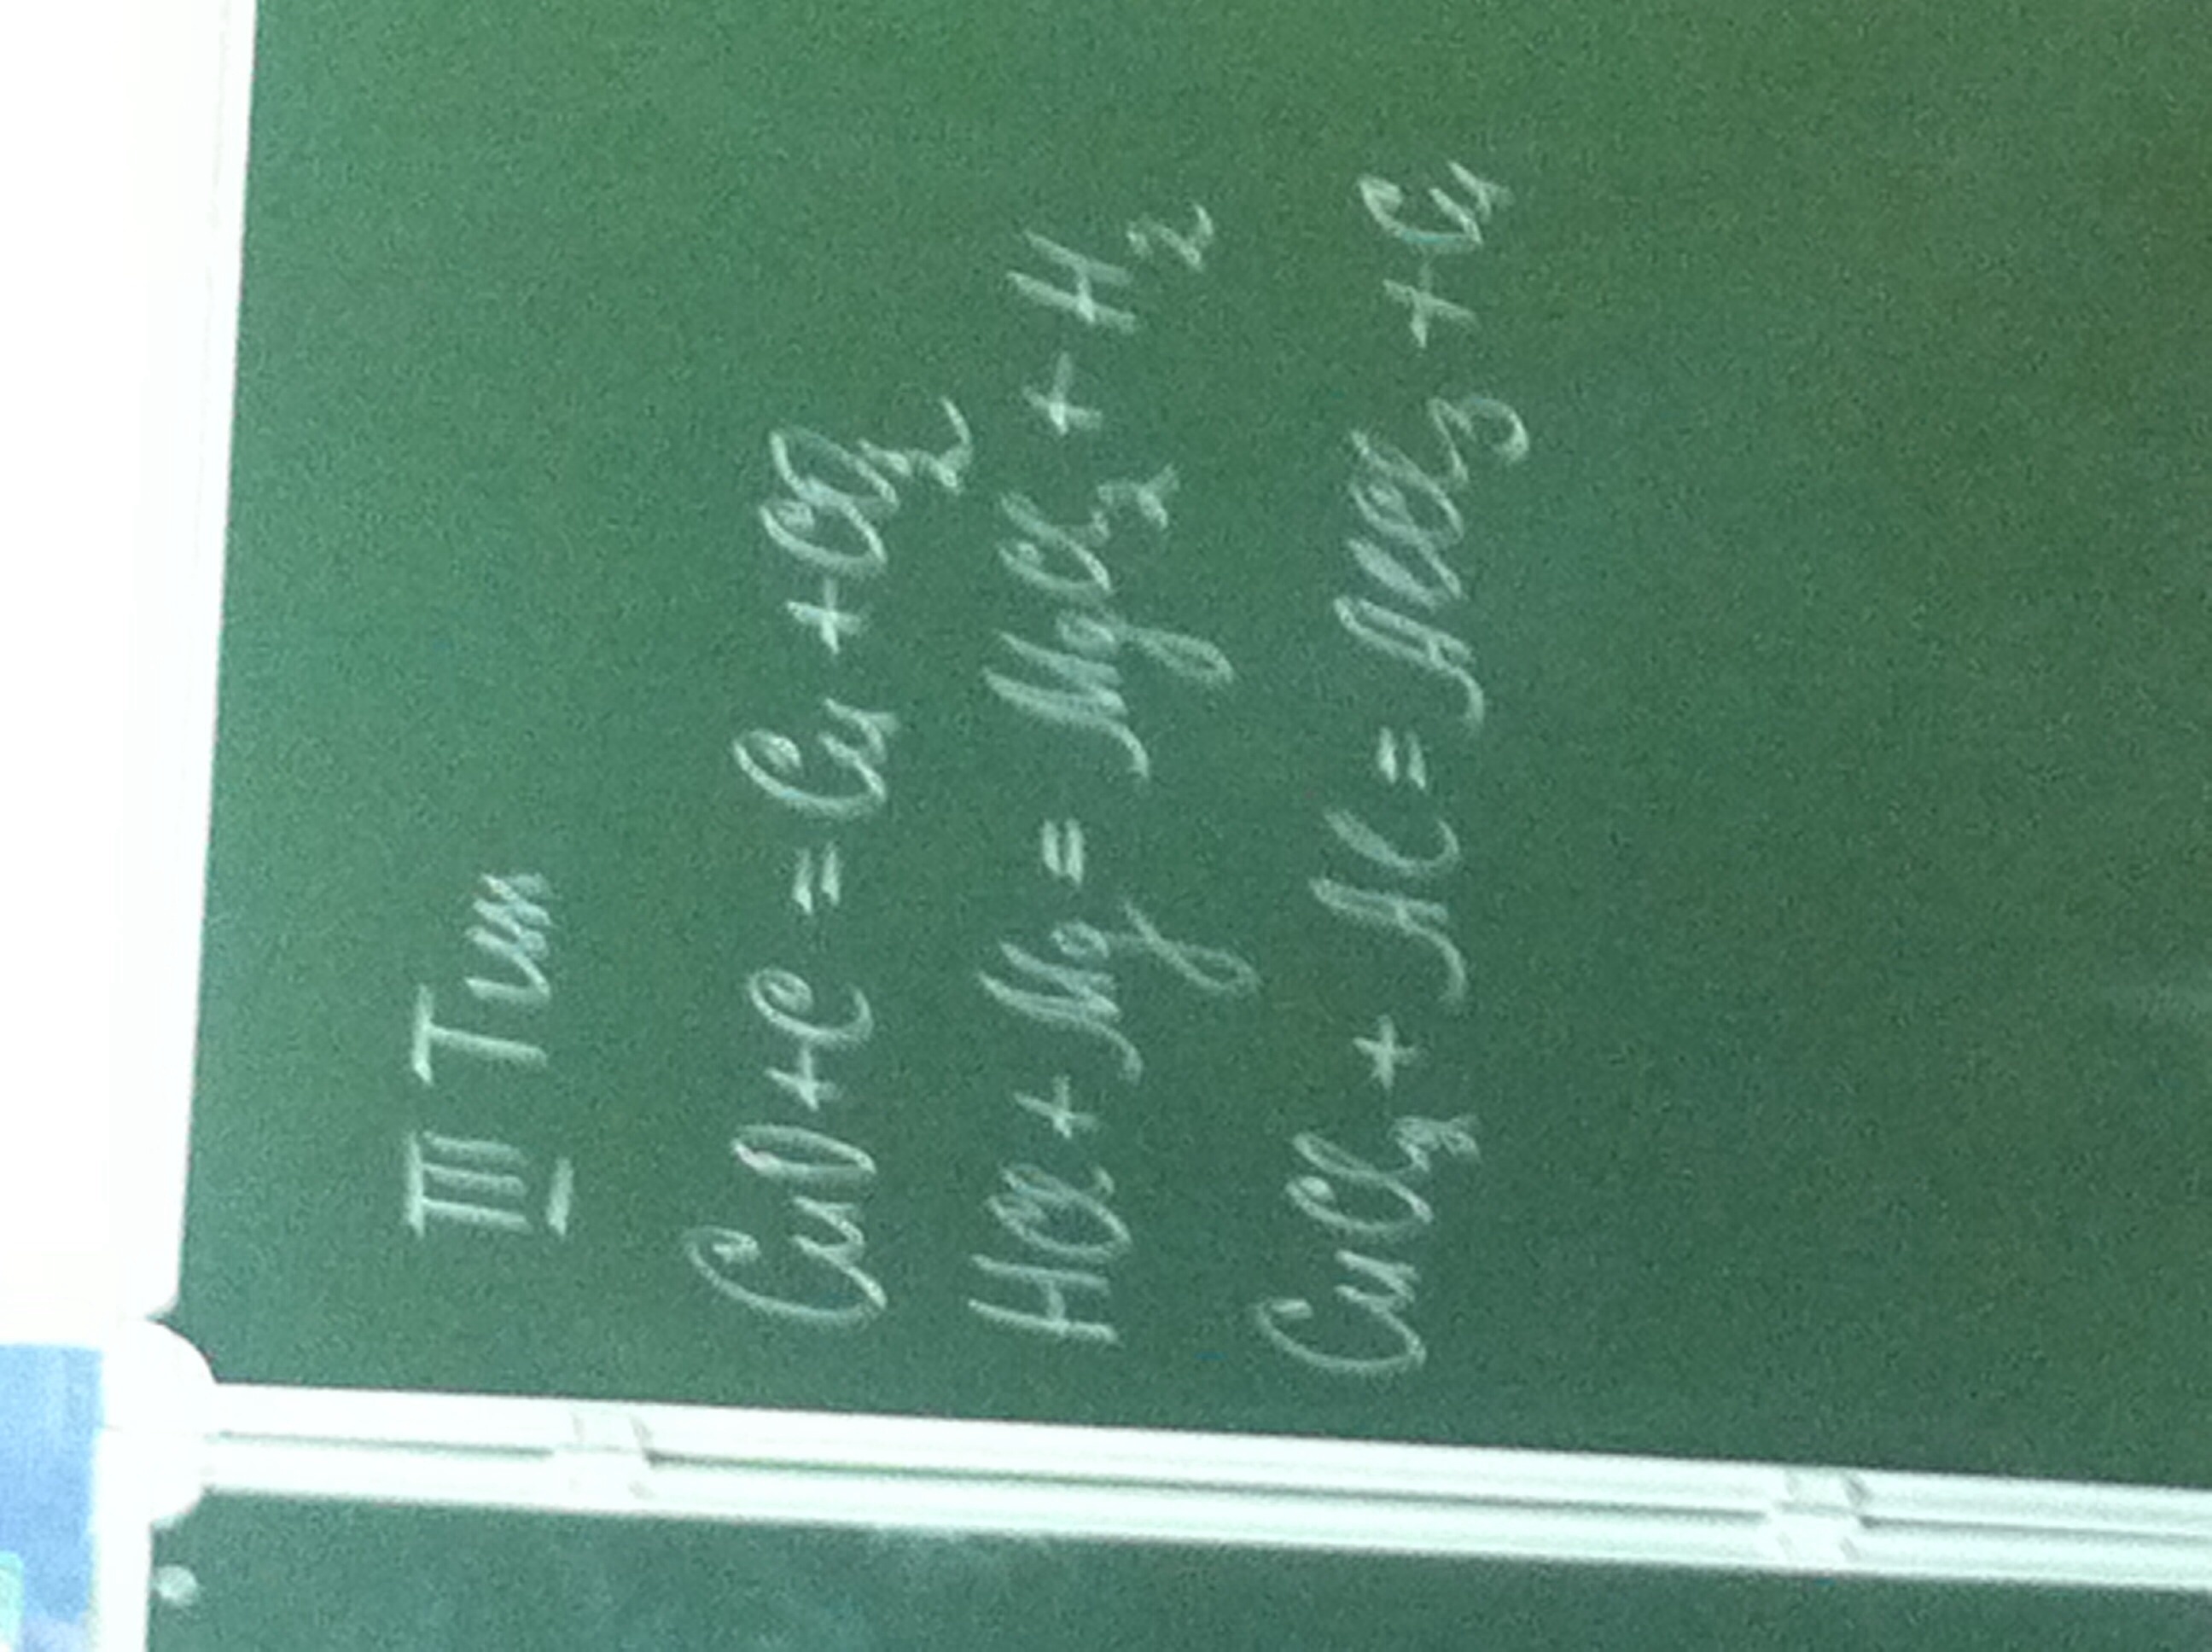 III Тип
CuO + C = Cu + CO₂
HCl + Mg = MgCl₂ + H₂
CuCl₂ + Al = AlCl₃ + Cu